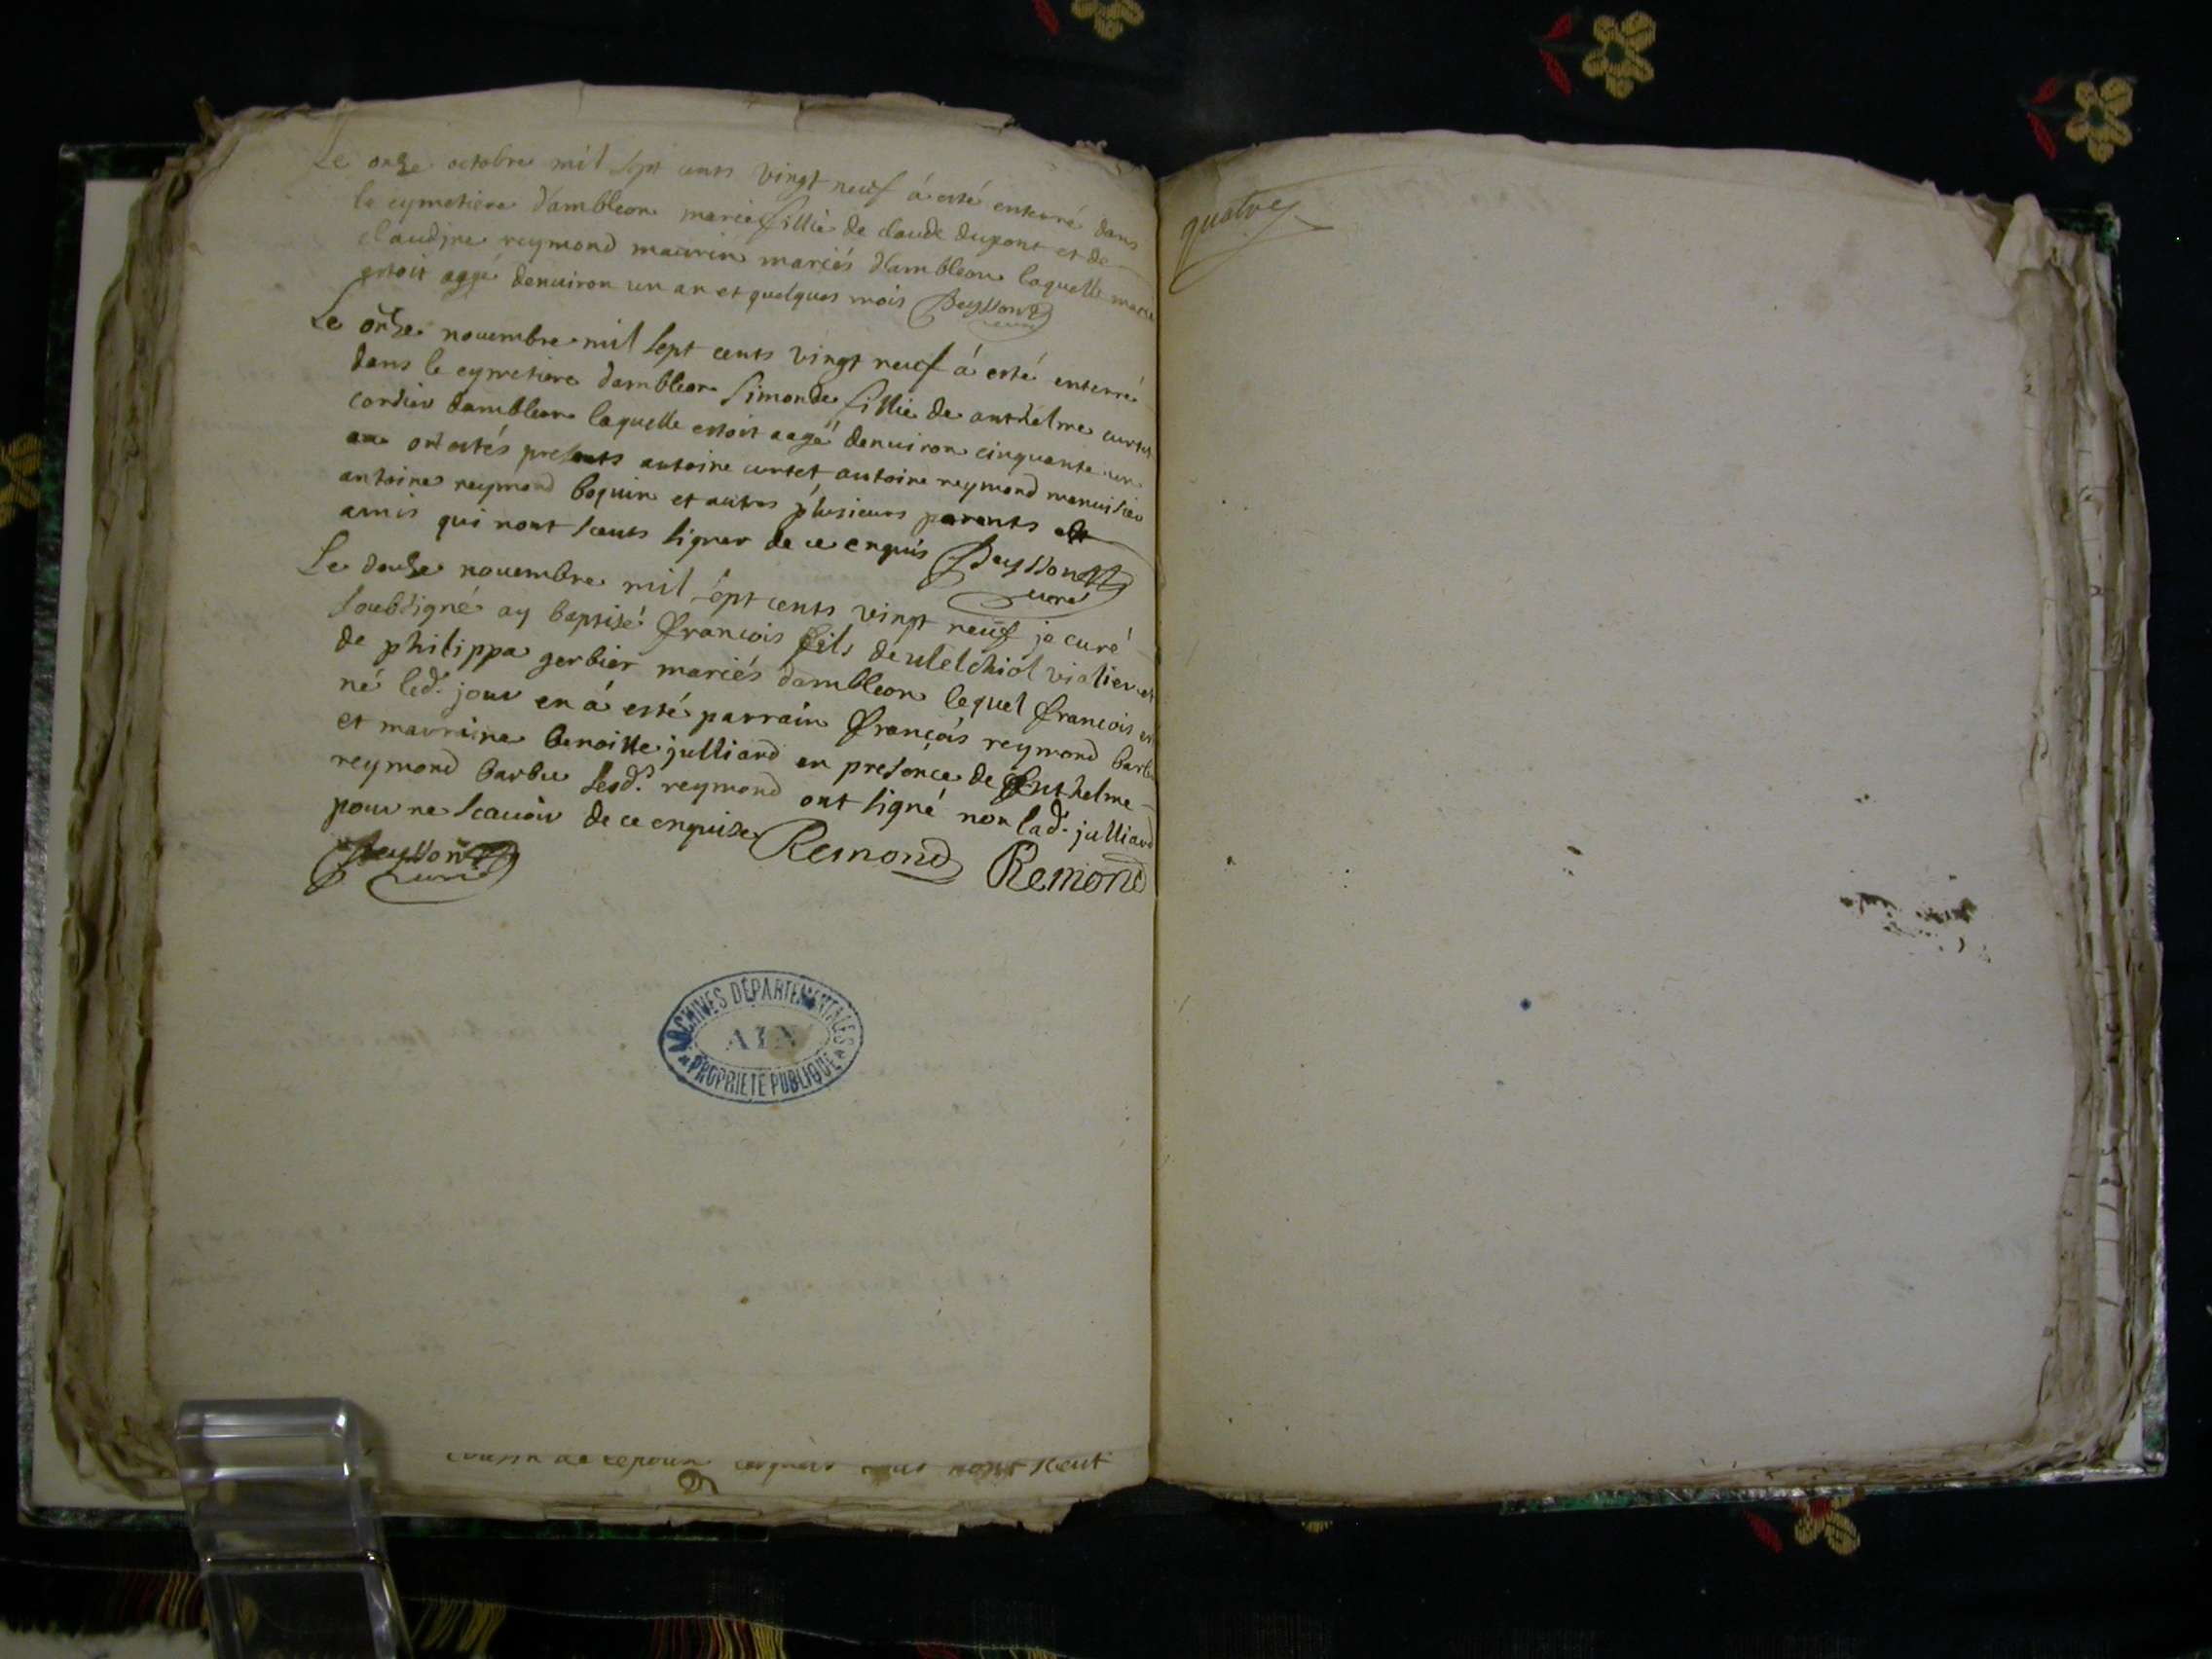 Le onze octobre mil sept cents vingt neuf á esté enterré dans
le cymetiere d'ambleon marie fillie de claude dupont et de
claudine reymond maurin mariés d'ambleon laquelle marie
estoit aagé denuiron un an et quelques mois Beysson
curé
Le onze nouembre mil sept cents vingt neuf á esté enterré
dans le cymetiere dambleon simonde fillie de anthelme curtet
cordier dambleon laquelle estoit aagé denuiron cinquante un
an ont estés presents antoine curtet, antoine reymond menuisier
antoine reymond boquin et autres plusieurs parents et
amis qui nont sceuts signer de ce enquis Beysson
curé
Le douze nouembre mil sept cents vingt neuf je curé
soubsigné ay baptisé francois fils de Melchiol vialier et
de philippa gerbier mariés dambleon lequel francois est
né led. jour en á esté parrain françois reymond barbu
et marraine benoitte julliard en presence de Anthelme
reymond barbu lesd. reymond ont signé non lad. julliard
pour ne scauoir de ce enquise Remond Remond
Beysson
curé
ARCHIVES DÉPARTEMENTALES
AIN
PROPRIÉTÉ PUBLIQUE
cousin de lepoux nont sceut
quatre